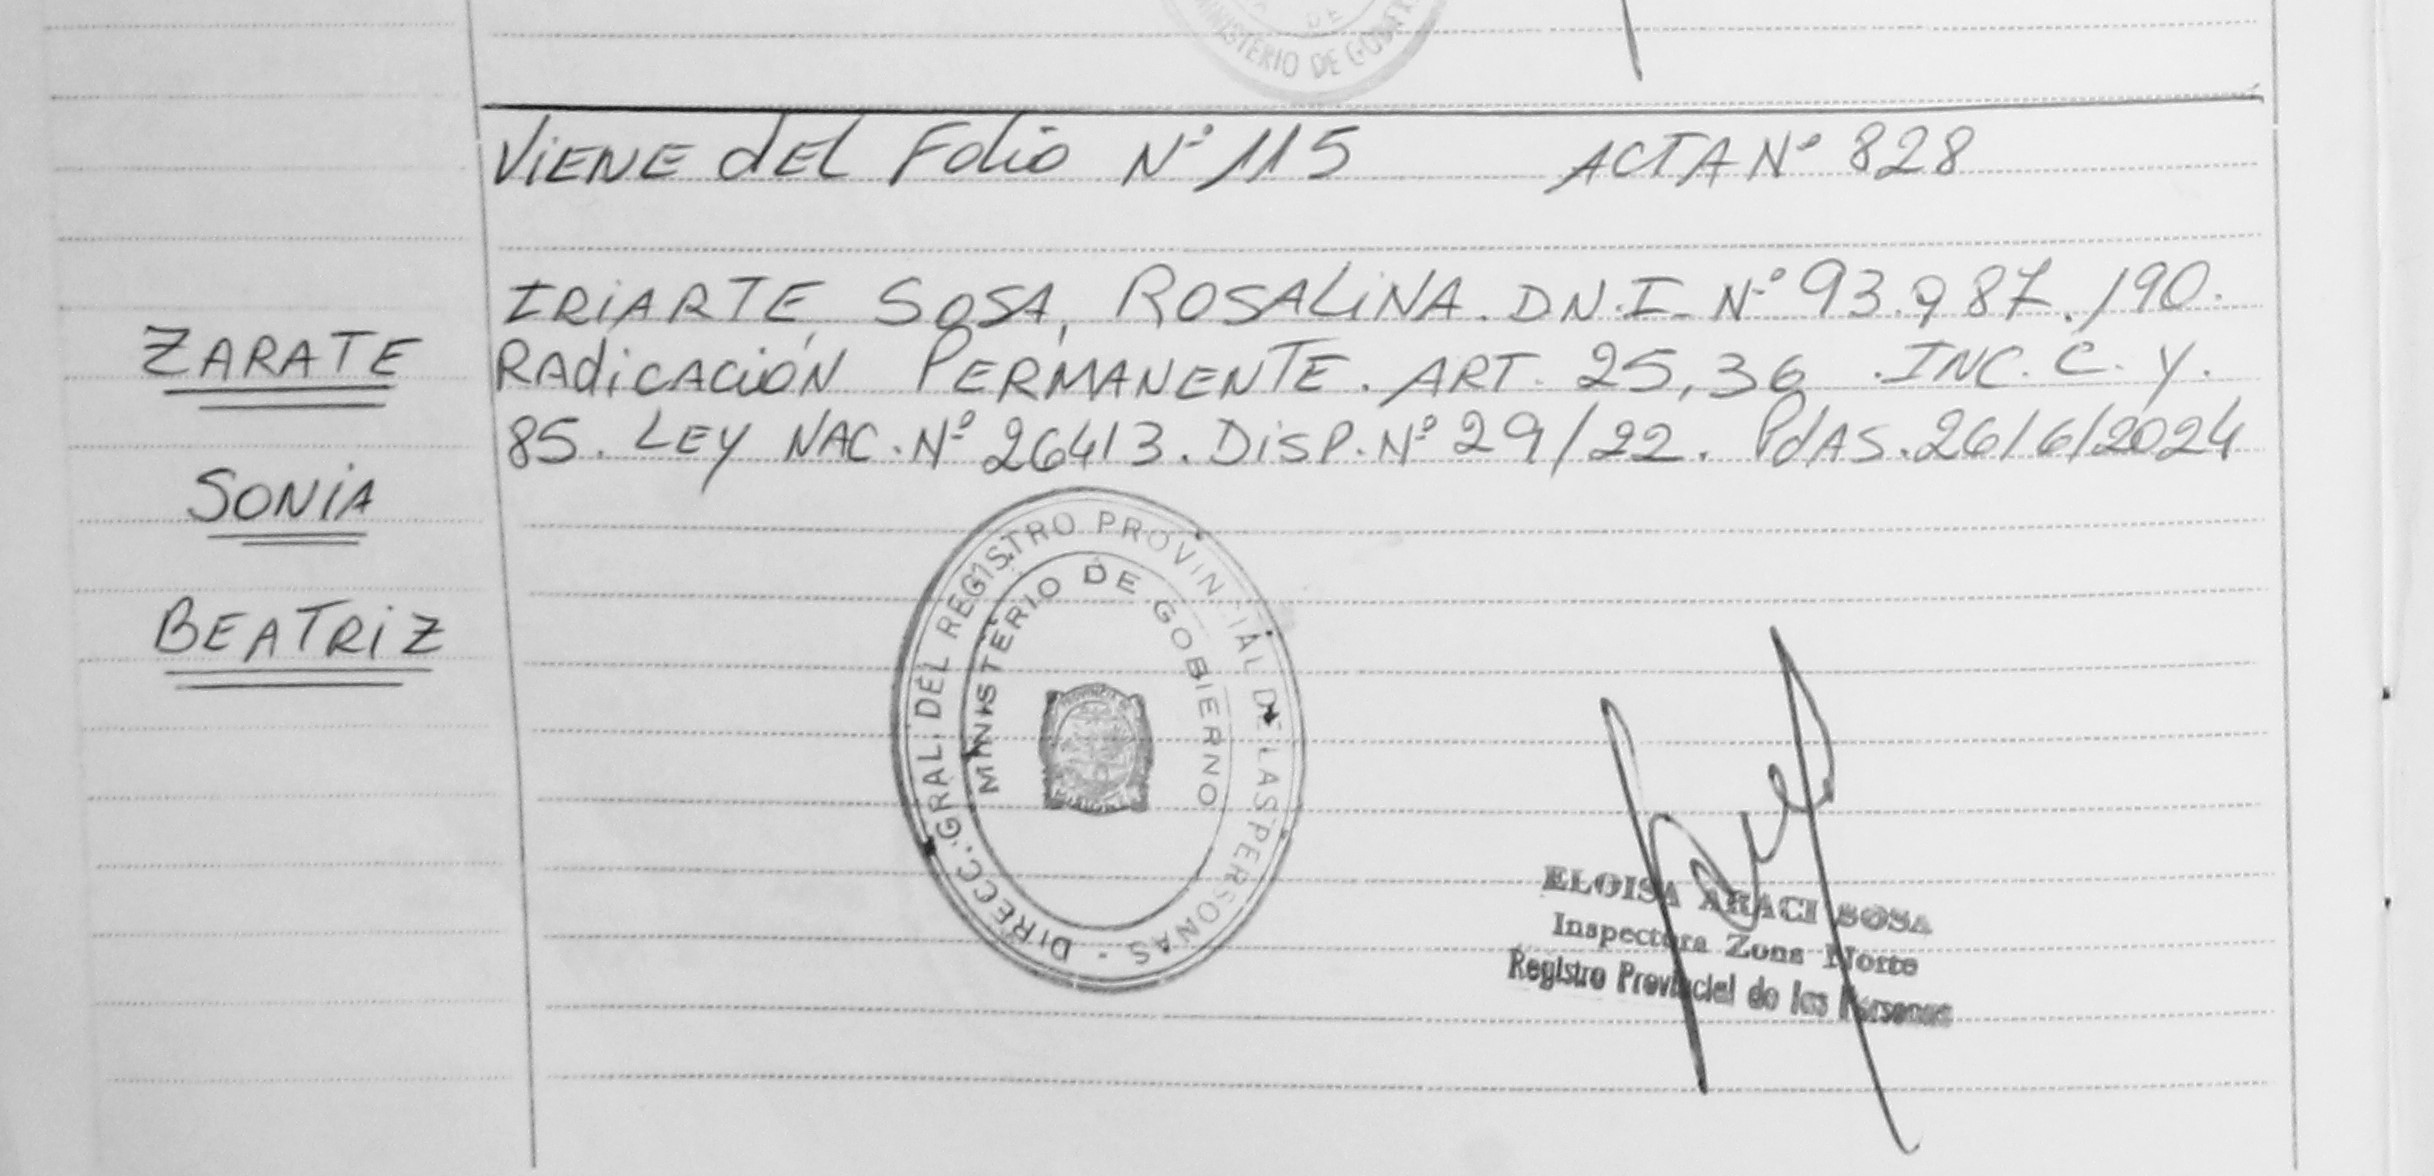 MINISTERIO DE GOBIE
DE
ViENE dEL Folio Nº 115 ACTA Nº 828
IRiARTE, SOSA, ROSALiNA. DN.I. Nº 93.987.190.
RAdiCACiÓN PERMANENTE. ART. 25,36 .INC. C. Y.
85. LEY NAC. Nº 26413. DiSP. Nº 29/22. PdAS. 26/6/2024
ZARATE
SONiA
BEATRiZ
DIRECC. GRAL. DEL REGISTRO PROVINCIAL DE LAS PERSONAS -
MINISTERIO DE GOBIERNO
ELOISA ARACI SOSA
Inspectora Zona Norte
Registro Provincial de las Personas